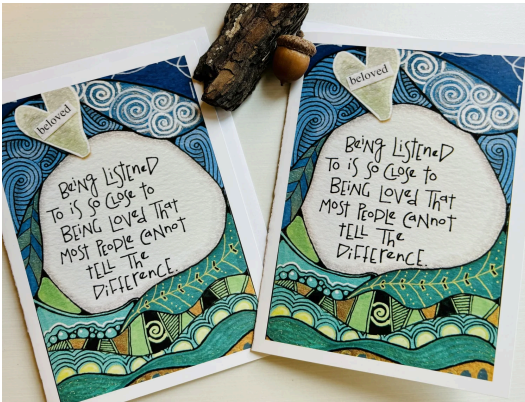 beloved
BEING LISTENED
TO IS SO CLOSE TO
BEING LOVED THAT
MOST PEOPLE CANNOT
TELL THE
DIFFERENCE.
beloved
BEING LISTENED
TO IS SO CLOSE TO
BEING LOVED THAT
MOST PEOPLE CANNOT
TELL THE
DIFFERENCE.